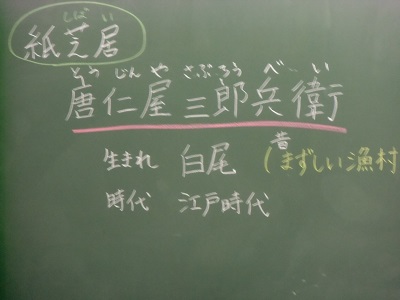 しばい
紙芝居
とうじんや さぶろう べ い
唐仁屋 三郎兵衛
生まれ 白尾 (昔まずしい漁村
時代 江戸時代